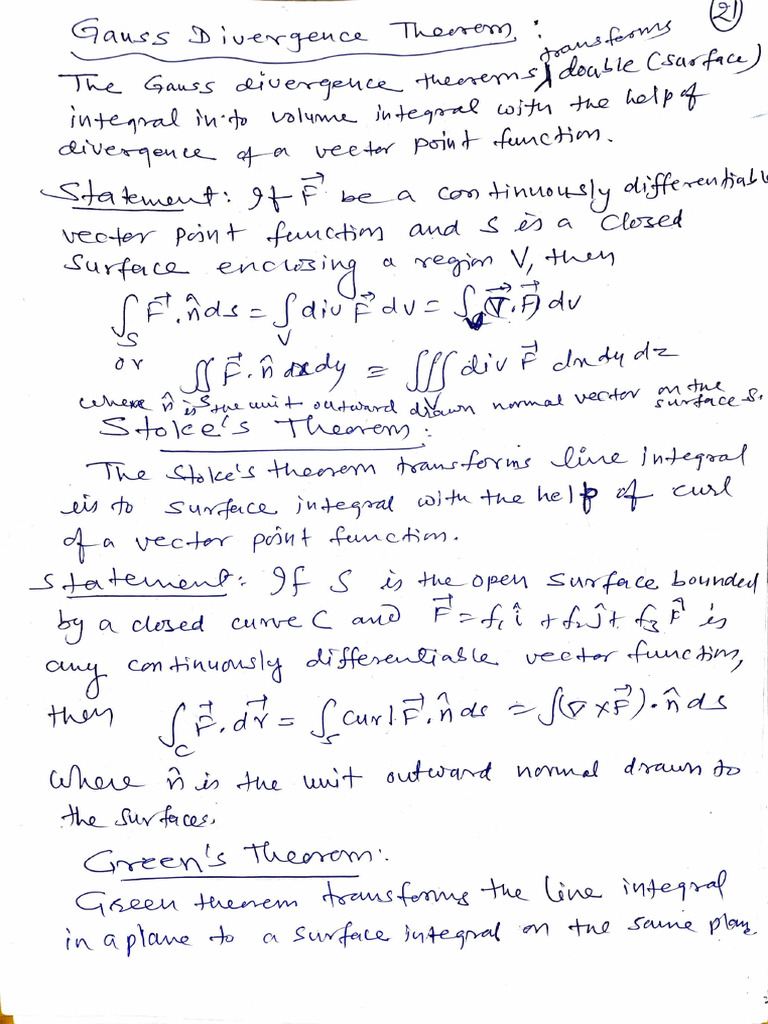 (21)
Gauss Divergence Theorem :
The Gauss divergence theorems transforms double (surface)
integral in to volume integral with the help of
divergence of a vector point function.
Statement : If F⃗ be a continuously differentiable
vector point function and S is a closed
surface enclosing a region V, then
∫_S F⃗.n̂ ds = ∫_V div F⃗ dv = ∫_V (∇⃗.F⃗) dv
or ∬_S F⃗.n̂ dxdy = ∭_V div F⃗ dxdydz
where n̂ is the unit outward drawn normal vector on the surface S.
Stoke's Theorem :
The Stoke's theorem transforms line integral
in to surface integral with the help of curl
of a vector point function.
Statement : If S is the open surface bounded
by a closed curve C and F⃗ = f₁î + f₂ĵ + f₃k̂ is
any continuously differentiable vector function,
then ∫_C F⃗.dr⃗ = ∫_S curl F⃗.n̂ ds = ∫(∇ × F⃗).n̂ ds
where n̂ is the unit outward normal drawn to
the surfaces.
Green's Theorem :
Green theorem transforms the line integral
in a plane to a surface integral on the same plane